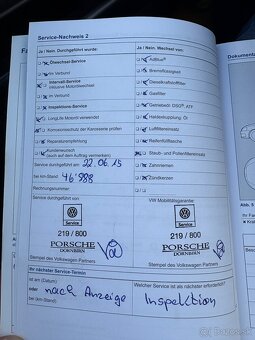 Service-Nachweis 2
Ja / Nein, Durchgeführt wurde:
Ölwechsel-Service
im Verbund
Intervall-Service
inklusive Motorölwechsel
im Verbund
Inspektions-Service
LongLife Motoröl verwendet
Korrosionsschutz der Karosserie prüfen
Reparaturempfehlung
Kundenwunsch
(auch auf dem Auftrag vermerken)
Service durchgeführt am: 22.06.15
bei km-Stand 46'888
Rechnungsnummer
Service durchgeführt von
Service
219 / 800
PORSCHE
DORNBIRN
Stempel des Volkswagen Partners
Ja / Nein, Wechsel von:
AdBlue®
Bremsflüssigkeit
Dieselfilter
Gasfilter
Getriebeöl DSG®
Haldexkupplung Öl
Luftfiltereinsatz
Reifenfüllflasche
Staub- und Pollenfiltereinsatz
Zahnriemen
Zündkerzen
VW Mobilitätsgarantie:
Service
219 / 800
PORSCHE
DORNBIRN
Stempel des Volkswagen Partners
Ihr nächster Service-Termin
ist am (Datum)
oder nach Anzeige
bei (km-Stand)
Welcher Service ist als nächstes fällig?
Inspektion
Dokumenta
Abb. 5